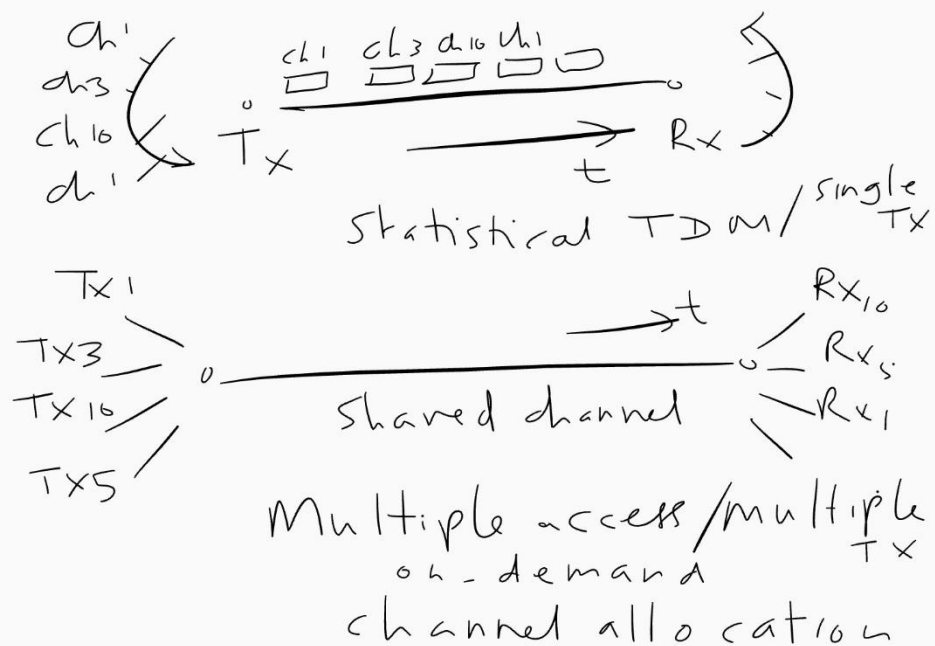 ch1
ch3
ch10
ch1
ch1 ch3 ch10 ch1
Tx
t
Rx
Statistical TDM/single TX
Tx1
TX3
TX10
TX5
t
shared channel
RX10
Rx5
Rx1
Multiple access/multiple TX
on-demand
channel allocation